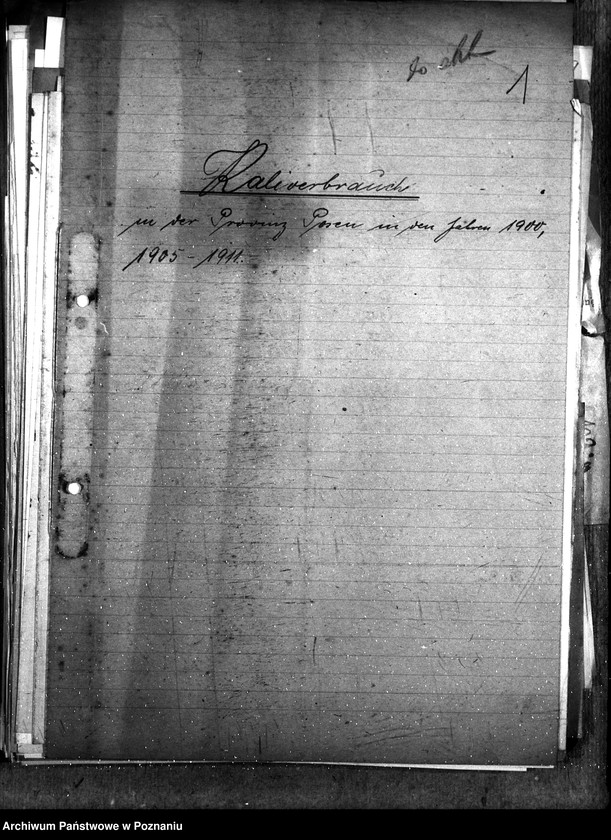 1
Kaliverbrauch
in der Provinz Posen in den Jahren 1900,
1905 - 1911.
Archiwum Państwowe w Poznaniu